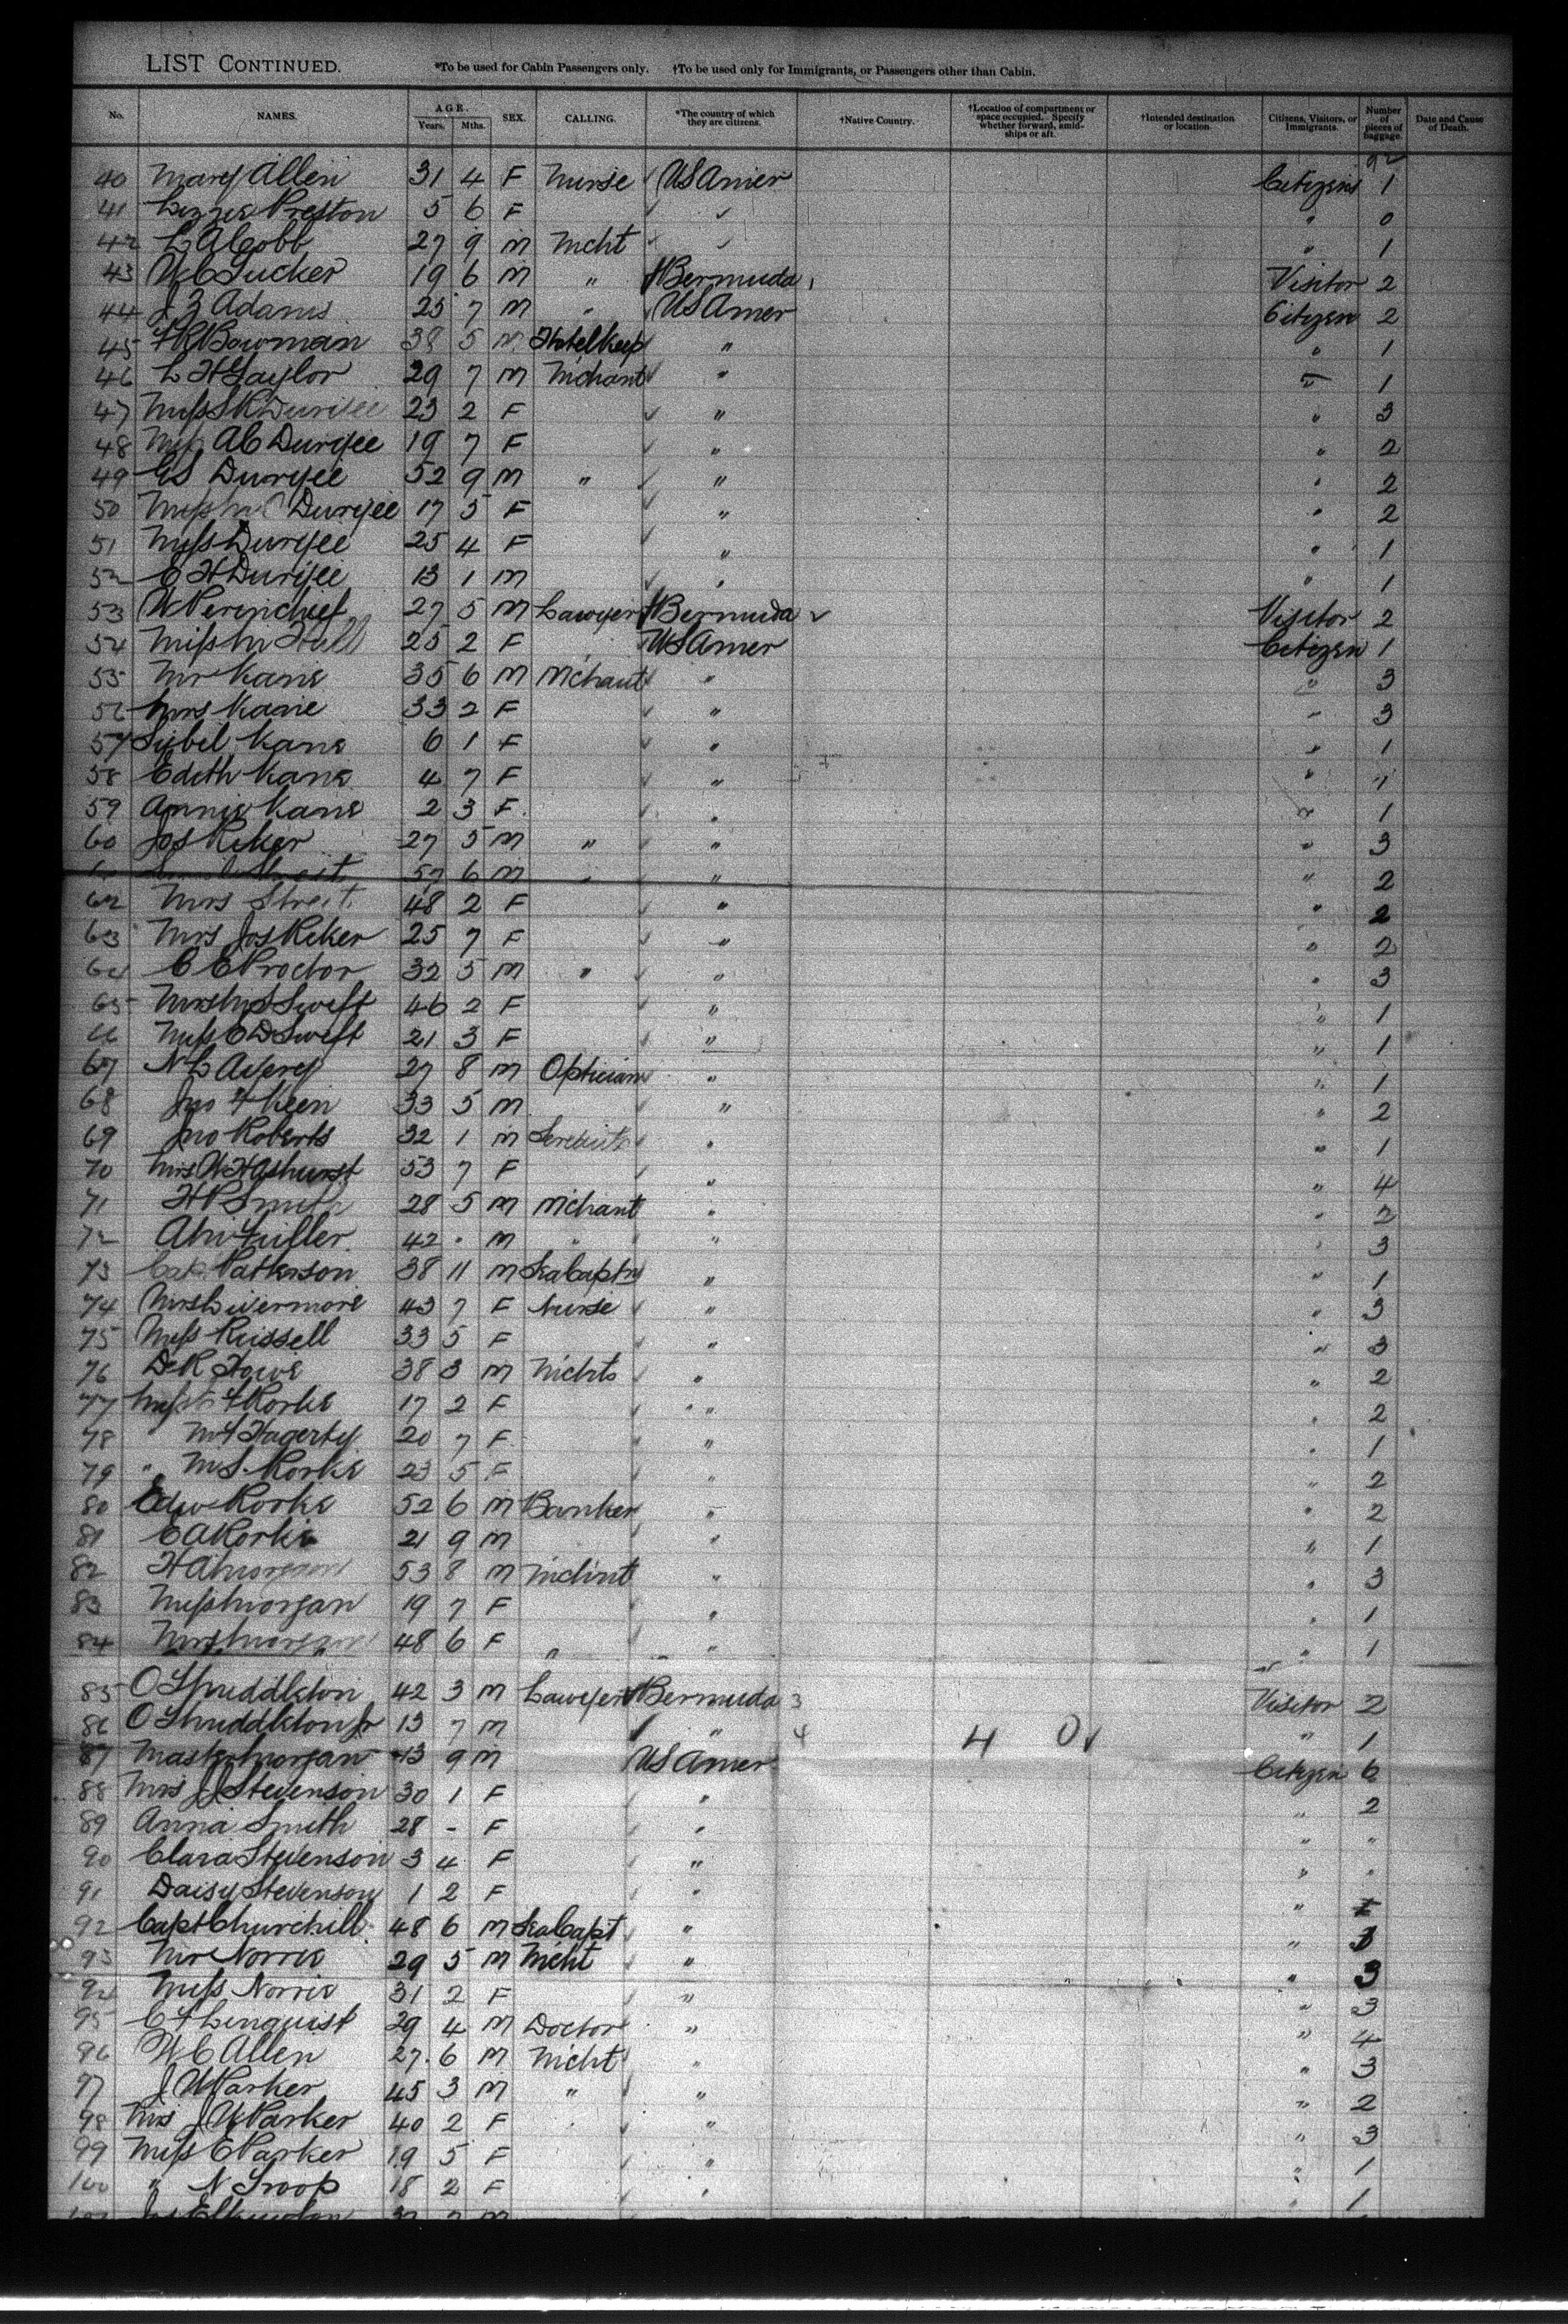 LIST CONTINUED. *To be used for Cabin Passengers only. †To be used only for Immigrants, or Passengers other than Cabin.
No. NAMES. AGE. Years. Mths. SEX. CALLING. *The country of which they are citizens. †Native Country. †Location of compartment or space occupied. Specify whether forward, amidships or aft. †Intended destination or location. Citizens, Visitors, or Immigrants. Number of pieces of baggage. Date and Cause of Death.
40 Mary Allen 31 4 F Nurse US Amer Citizens 1
41 Lizzie Preston 5 6 F " 0
42 L A Cobb 27 9 M Mcht " 1
43 W C Tucker 19 6 M " Bermuda Visitor 2
44 J Z Adams 25 7 M " US Amer Citizen 2
45 Bowman 38 5 M Hotel Keep " " 1
46 L H Taylor 29 7 M Mchant " " 1
47 Miss S K Duryee 23 2 F " " 3
48 Miss A C Duryee 19 7 F " " 2
49 Duryee 52 9 M " " " 2
50 Miss Duryee 17 5 F " " 2
51 Miss Duryee 25 4 F " " 1
52 E H Duryee 13 1 M " " 1
53 W Perinchief 27 5 M Lawyer Bermuda Visitor 2
54 Miss M Hall 25 2 F US Amer Citizen 1
55 Mr Kane 35 6 M Mchant " " 3
56 Mrs Kane 33 2 F " " 3
57 Sybil Kane 6 1 F " " 1
58 Edith Kane 4 7 F " " 1
59 Annie Kane 2 3 F " " 1
60 Jos Riker 27 5 M " " " 3
57 6 M " " " 2
62 Mrs Street 48 2 F " " 2
63 Mrs Jos Riker 25 7 F " " 2
64 C E Proctor 32 5 M " " " 3
65 Mrs Swift 46 2 F " " 1
66 Miss E D Swift 21 3 F " " 1
67 N L Avery 27 8 M Optician " " 1
68 Jno F Keen 33 5 M " " 2
69 Jno Roberts 32 1 M " " 1
70 Mrs W H Ashurst 53 7 F " " 4
71 H P Smith 28 5 M Mchant " " 2
72 Fuller 42 " M " " " 3
73 Capt Patterson 38 11 M Sea Captn " " 1
74 Mrs Livermore 43 7 F Nurse " " 3
75 Miss Russell 33 5 F " " 3
76 D R Howe 38 3 M Mchts " " 2
77 Miss F Rorke 17 2 F " " 2
78 " M F Hagerty 20 7 F " " 1
79 " M S Rorke 23 5 F " " 2
80 Edw Rorke 52 6 M Banker " " 2
81 E A Rorke 21 9 M " " 1
82 H A Morgan 53 8 M Mchnt " " 3
83 Miss Morgan 19 7 F " " 1
84 Mrs Morgan 48 6 F " " " 1
85 O T Middleton 42 3 M Lawyer Bermuda 3 Visitor 2
86 O T Middleton Jr 13 7 M " 4 4 0 " 1
87 Master Morgan 13 9 M US Amer Citizen 6
88 Mrs J J Stevenson 30 1 F " " 2
89 Anna Smith 28 - F " " "
90 Clara Stevenson 3 4 F " " "
91 Daisy Stevenson 1 2 F " "
92 Capt Churchill 48 6 M Sea Capt " " 3
93 Mr Norris 29 5 M Mcht " " 3
94 Miss Norris 31 2 F " " 3
95 C F Linquist 29 4 M Doctor " " 4
96 W C Allen 27 6 M Mcht " " 3
97 J W Parker 45 3 M " " " 2
98 Mrs J W Parker 40 2 F " " 3
99 Miss E Parker 19 5 F " " 1
100 " N Troop 18 2 F " " 1